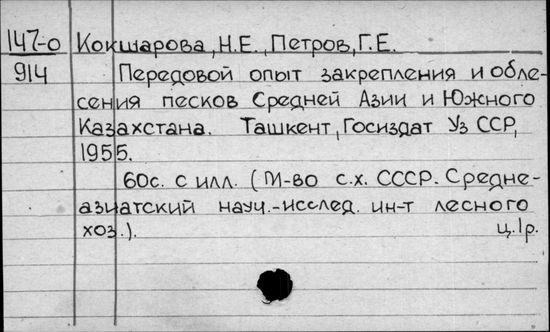 147-0 Кокшарова, Н.Е., Петров, Г.Е.
914 Передовой опыт закрепления и обле-
сения песков Средней Азии и Южного
Казахстана. Ташкент, Госиздат Уз ССР,
1955.
60с. с илл. (М-во с.х. СССР. Средне-
азиатский науч.-исслед. ин-т лесного
хоз.). ц.1р.